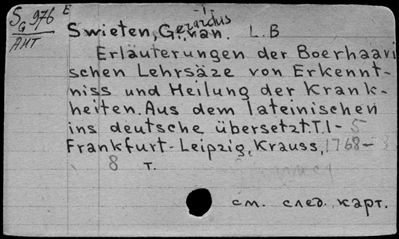 S G 976 E
АНТ
Swieten, Gerardus van. L.B
Erläuterungen der Boerhaavi
schen Lehrsäze von Erkennt-
niss und Heilung der Krank-
heiten. Aus dem lateinischen
ins deutsche übersetzt. T.1-5
Frankfurt-Leipzig, Krauss, 1768-
8 т.
см. след. карт.